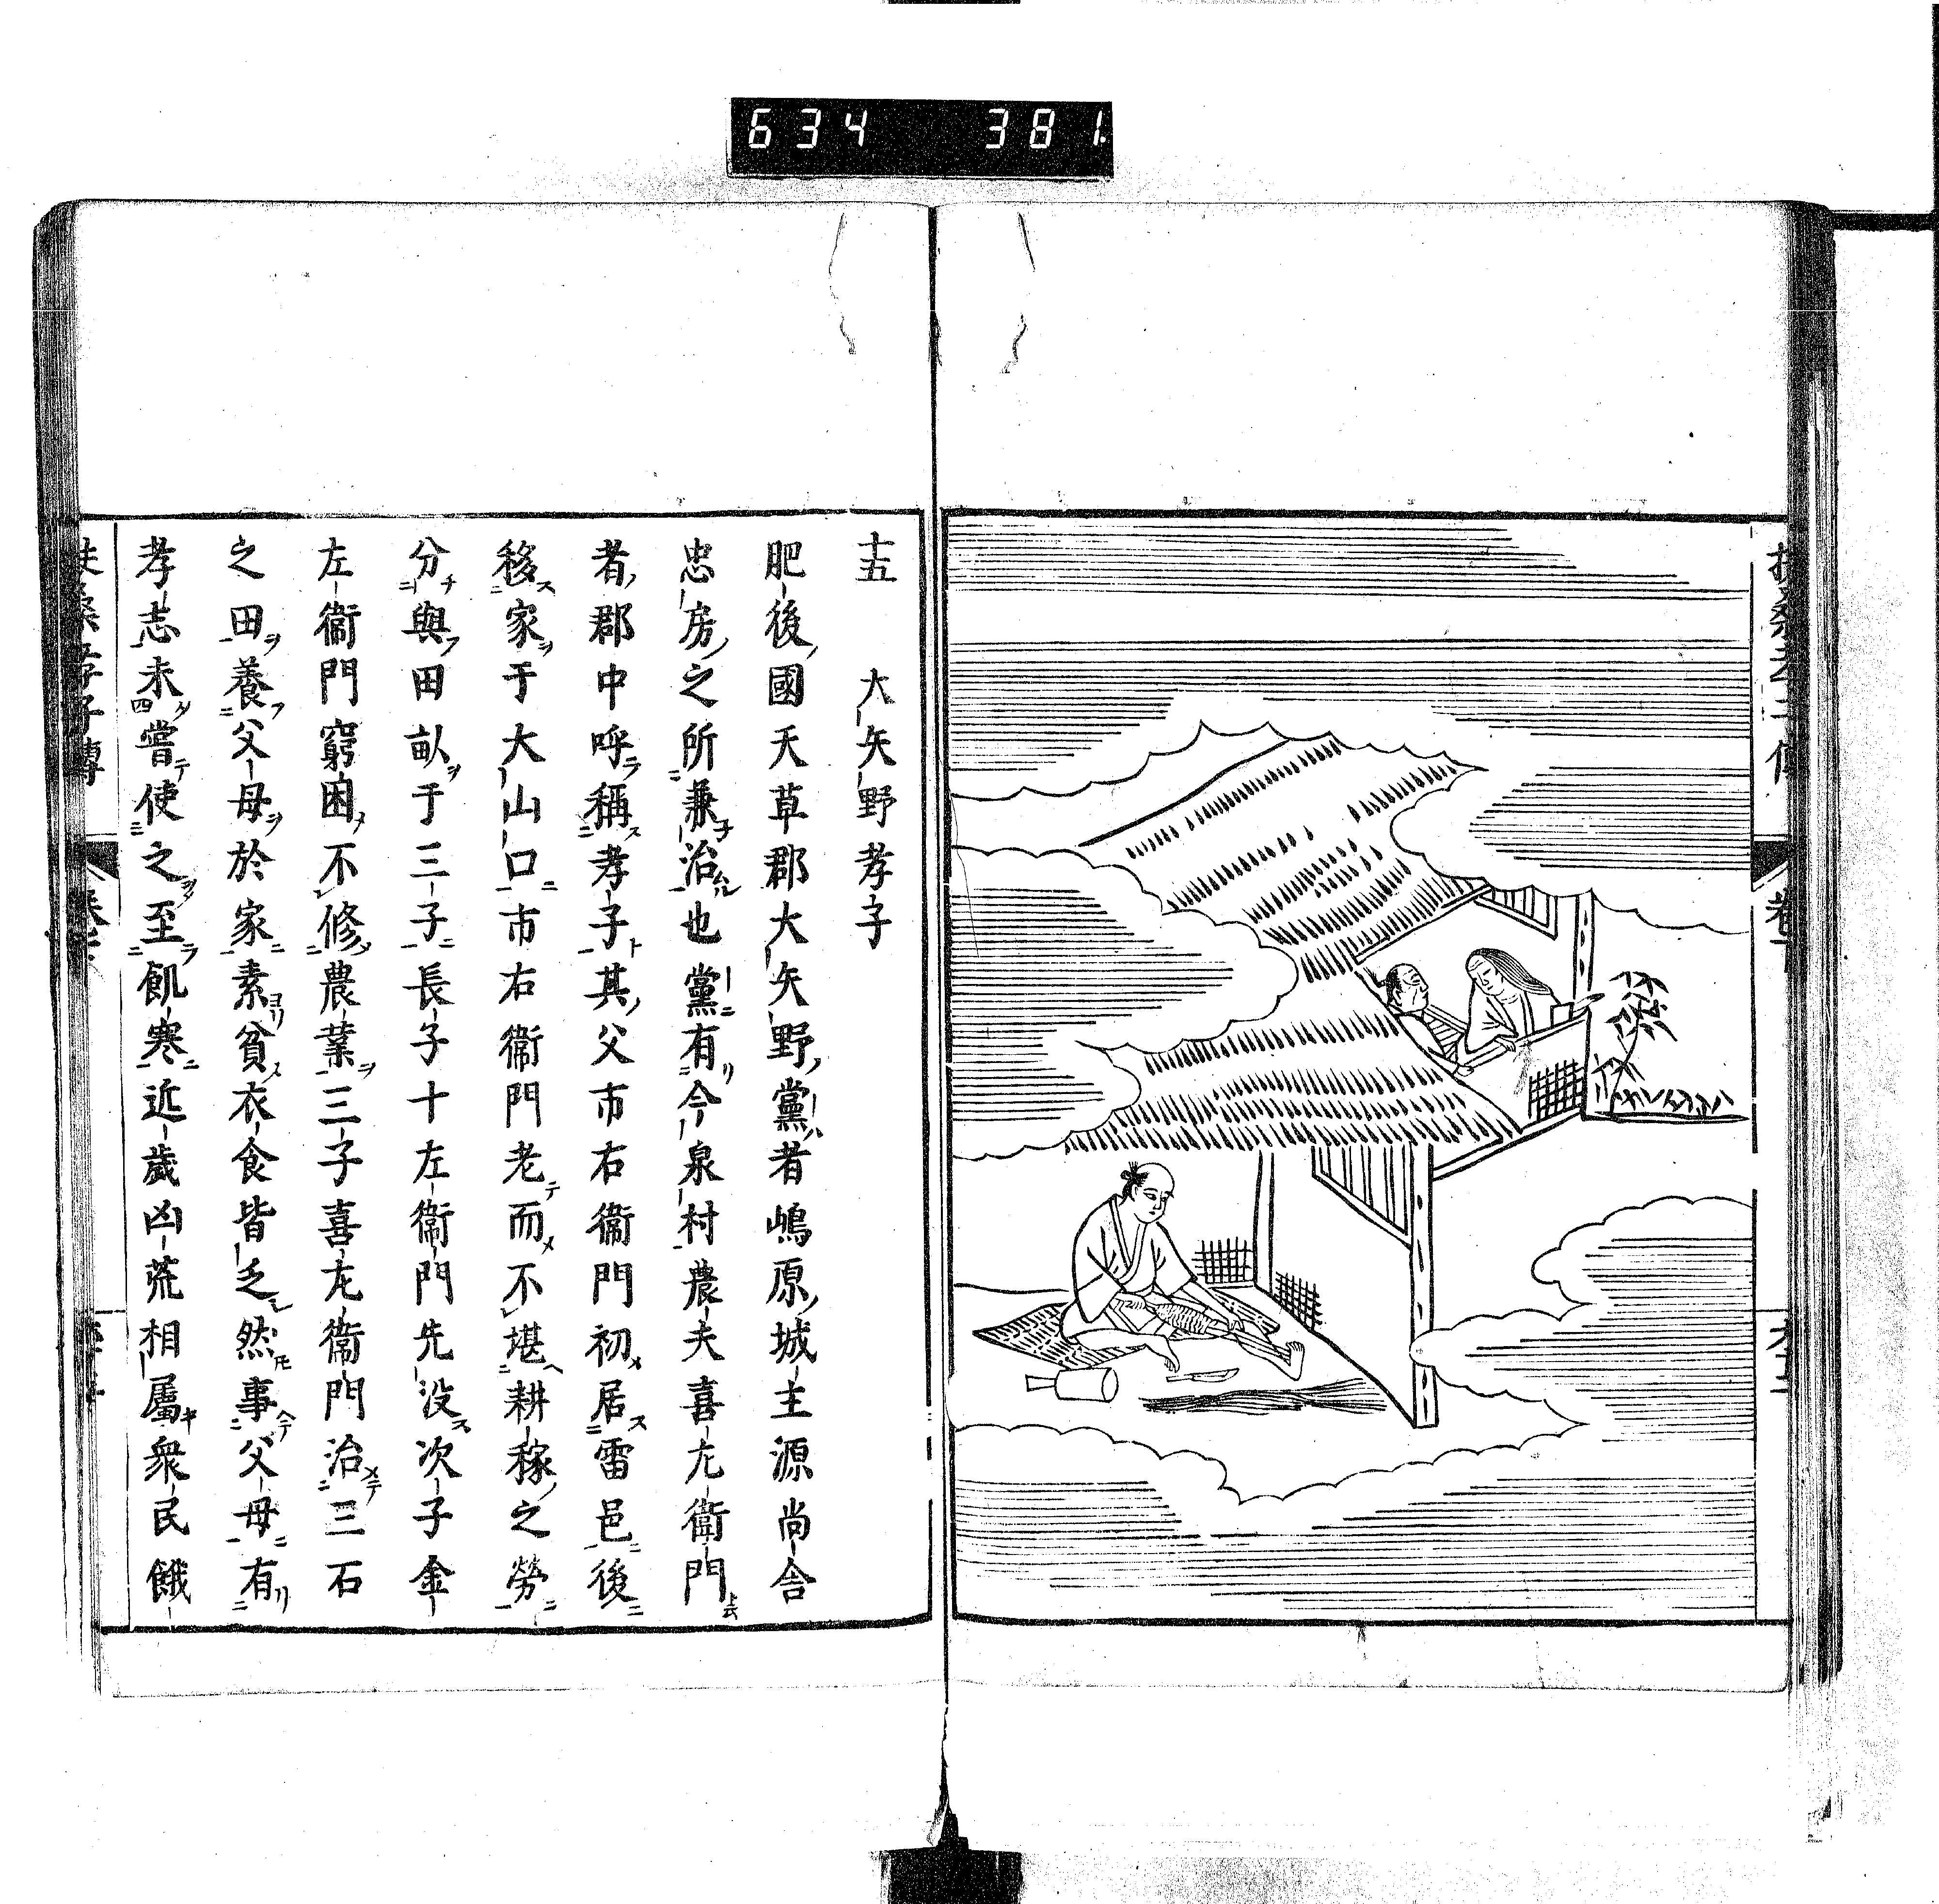 634 381
十五 大矢野孝子
肥後國天草郡大矢野黨者嶋原城主源尚舎
忠房之所兼治也黨有今泉村農夫喜左衛門
者郡中呼稱孝子其父市右衛門初居雷邑後
移家于大山口市右衛門老而不堪耕稼之勞
分與田畝于三子長子十左衛門先没次子金
左衛門窮困不修農業三子喜左衛門治三石
之田養父母於家素貧衣食皆乏然事父母有
孝志未嘗使之至飢寒近歲凶荒相屬衆民餓